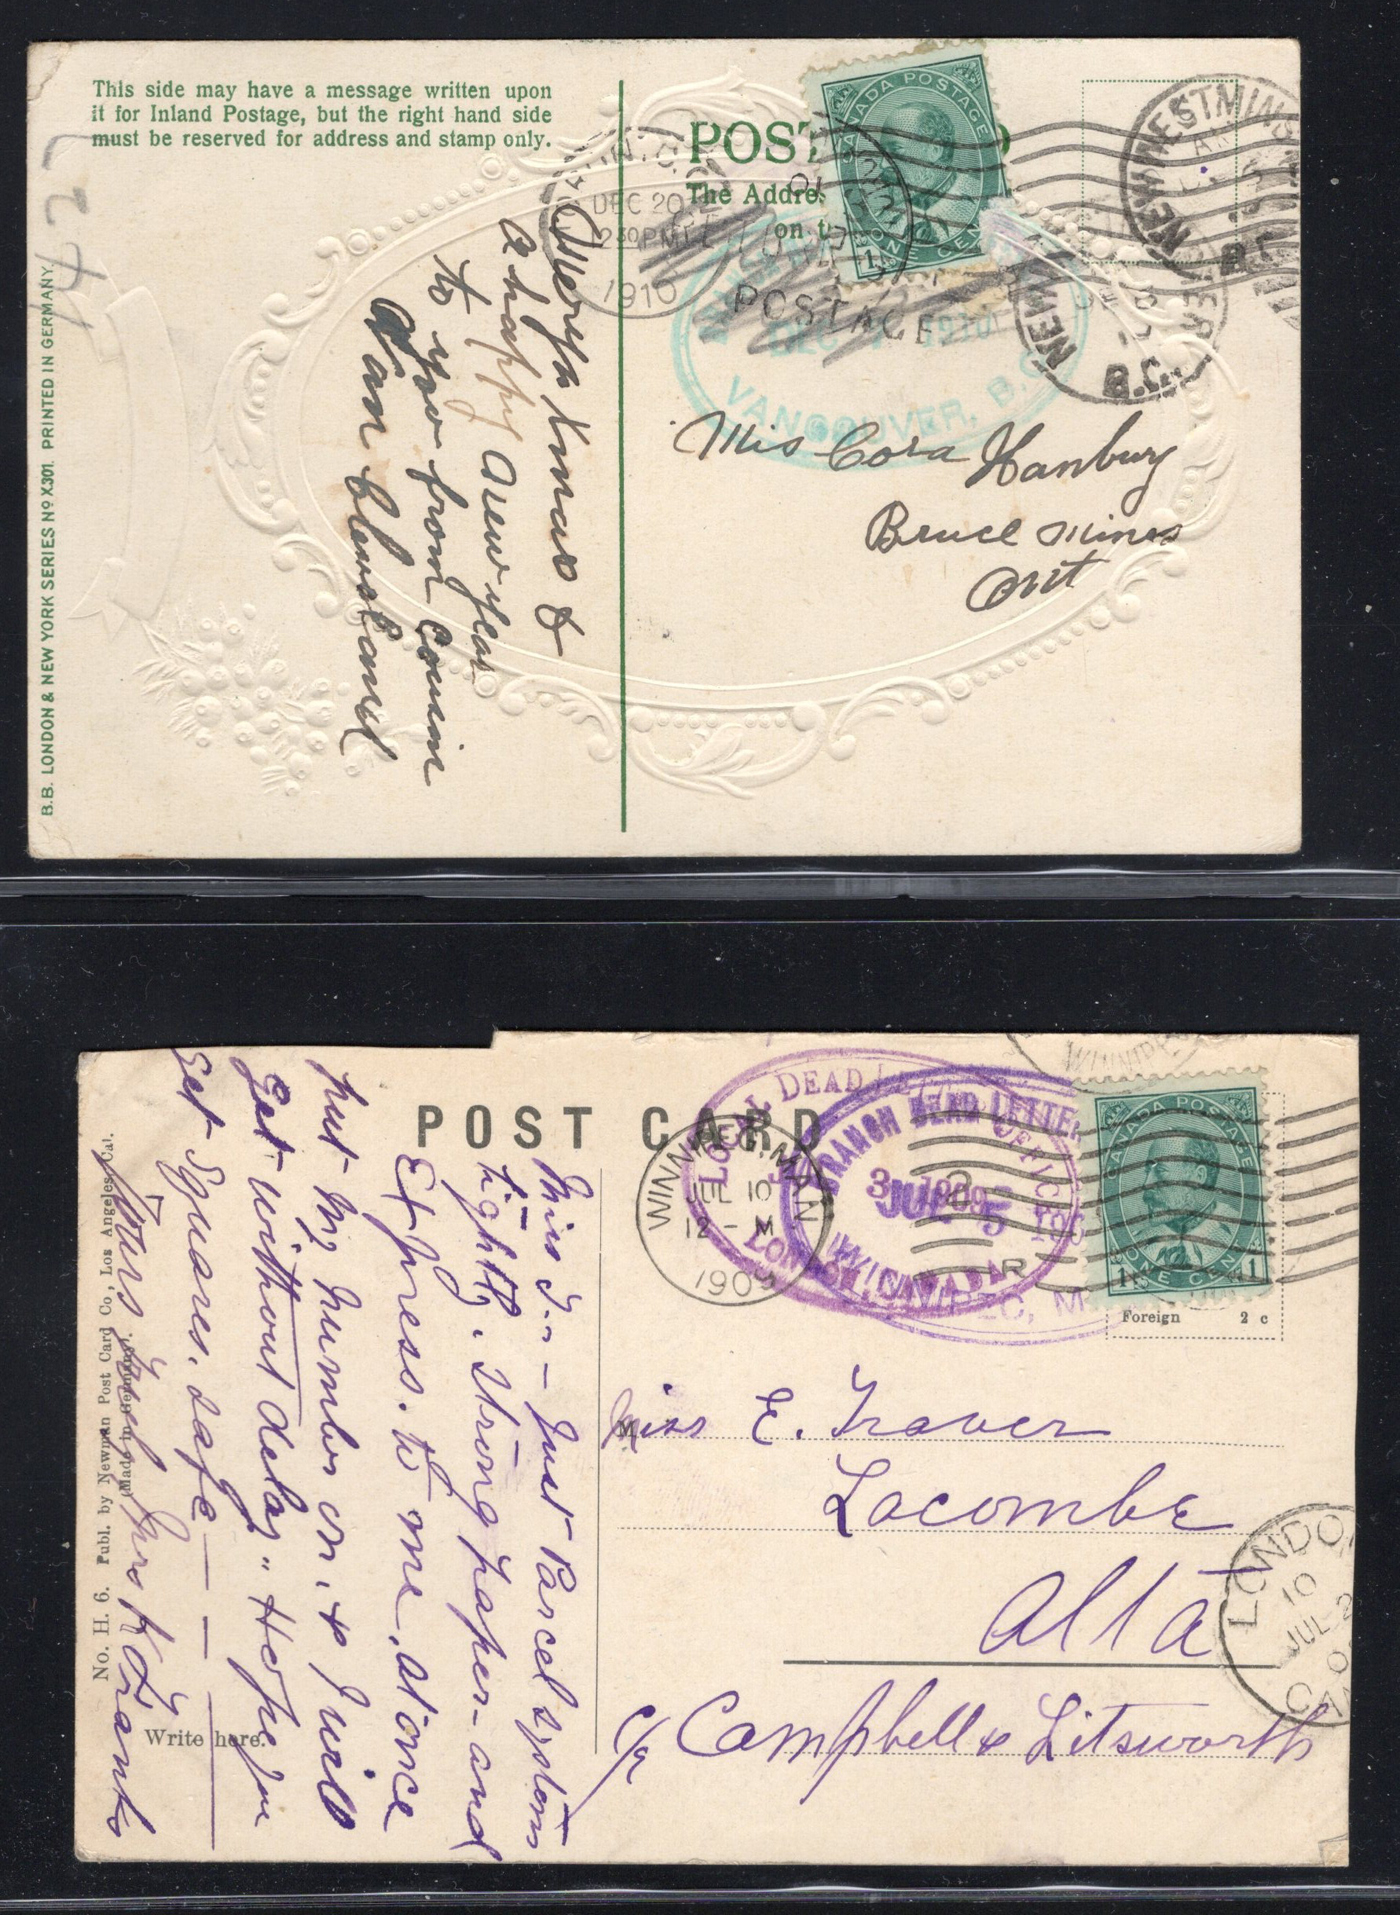 This side may have a message written upon
it for Inland Postage, but the right hand side
must be reserved for address and stamp only.
POST
The Addre
on t
CANADA POSTAGE
ONE CENT
1
NEW WESTMINS
B.C.
NEW WESTMINSTER
B.C.
DEC 20
230 PM
1910
POSTAGE
DEC 1910
VANCOUVER, B.C.
1427
B.B. LONDON & NEW YORK SERIES Nº X301. PRINTED IN GERMANY.
Merry Xmas &
a happy New year
to you from Cousin
Mis Cora Hanbury
Bruce Mines
Ont
POST CARD
WINNIPEG
LOCAL DEAD LETTER OFFICE
LONDON, CANADA
BRANCH DEAD LETTER
JUL 5
1909
WINNIPEG, M
WINNIPEG, MAN
JUL 10
12 - M
1909
CANADA POSTAGE
1 ONE CENT 1
Foreign 2 c
Miss E. Traver
Lacombe
Alta
c/o Campbell & Litsworth
LONDON
10
JUL 2
0
CAN
Miss Dr - Just Parcel systems
tightly. Strong paper - and
Express. to me. at once
put my number on. & I will
Get without delay. " Hope you
Get Squares. safe -
No. H. 6. Publ. by Newman Post Card Co., Los Angeles, Cal.
(Made in Germany).
Write here.